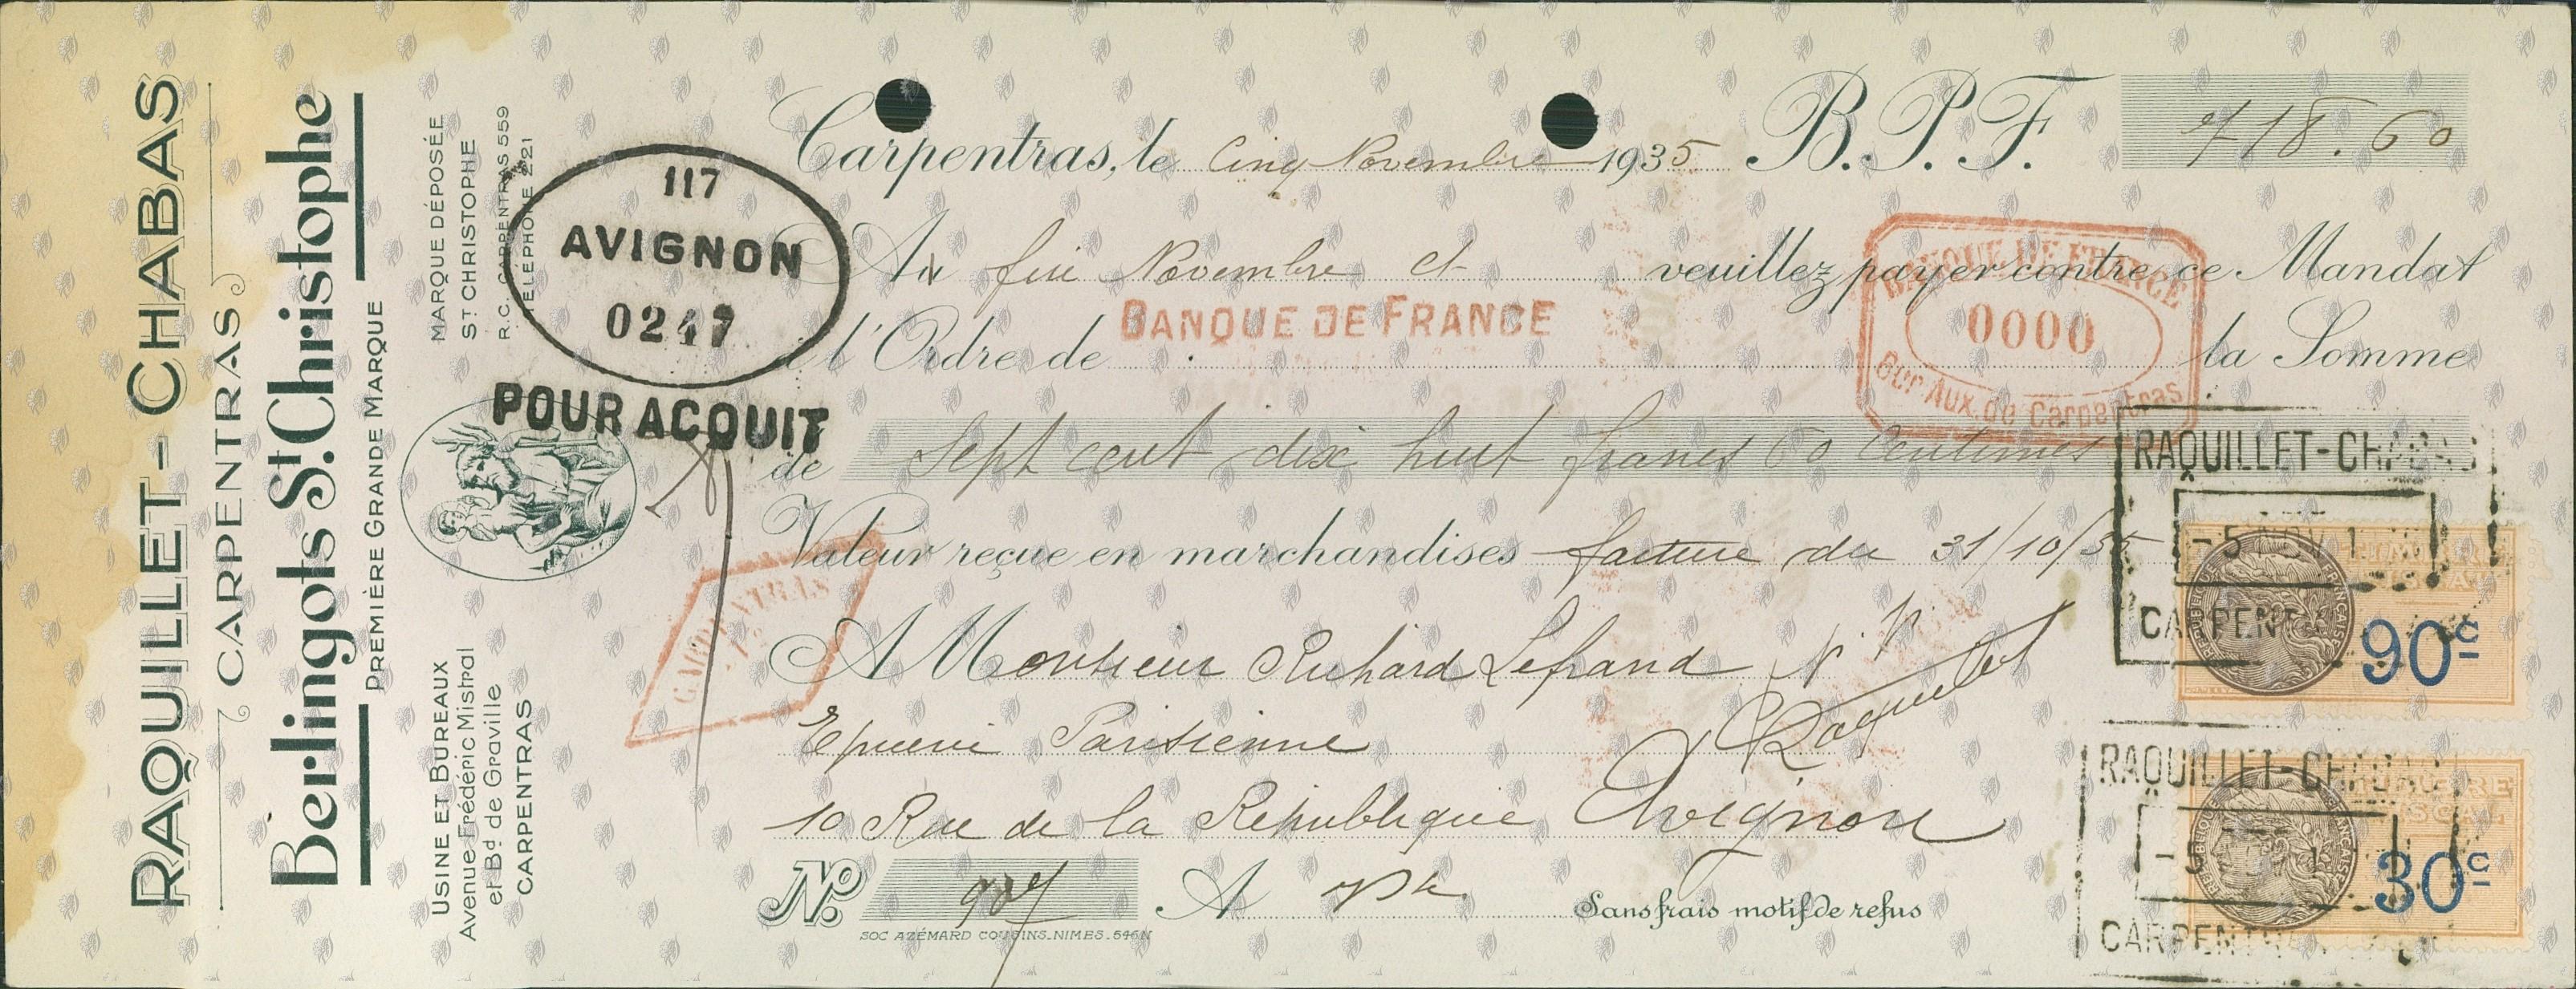 RAQUILLET-CHABAS
CARPENTRAS
Berlingots St. Christophe
PREMIÈRE GRANDE MARQUE
MARQUE DÉPOSÉE
ST CHRISTOPHE
R.C. CARPENTRAS 559
TÉLÉPHONE 221
USINE ET BUREAUX
Avenue Frédéric Mistral
et Bd de Graville
CARPENTRAS
117
AVIGNON
0247
POUR ACQUIT
Carpentras, le Cinq Novembre 1935 B.P.F. 718.60
Au fin Novembre ct veuillez payer contre ce Mandat
à l'Ordre de BANQUE DE FRANCE la Somme
BANQUE DE FRANCE
0000
Bur Aux. de Carpentras
de Sept cent dix huit francs 60 Centimes
Valeur reçue en marchandises facture du 31/10/35
CARPENTRAS
A Monsieur Richard Lefrand
Epicerie Parisienne
Raquillet
10 Rue de la République Avignon
No. 907 A
Sans frais motif de refus
SOC AZÉMARD COUSINS. NIMES.
RAQUILLET-CHABAS
-5 NOV 1
CARPENTRAS
RÉPUBLIQUE FRANÇAISE
90c
RAQUILLET-CHABAS
-5
CARPENTRAS
RÉPUBLIQUE FRANÇAISE
30c